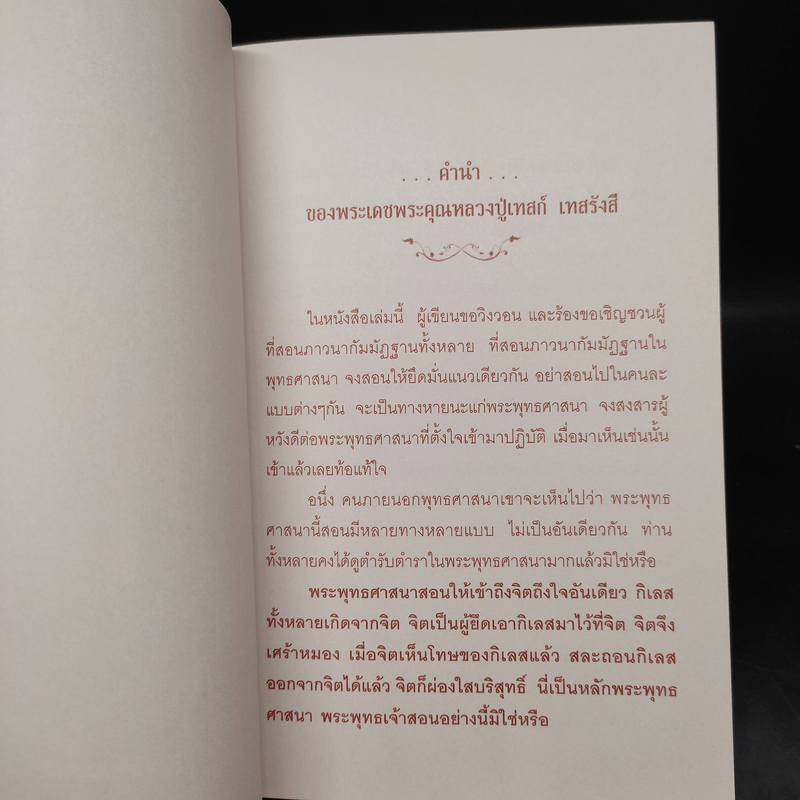 . . . คำนำ . . .
ของพระเดชพระคุณหลวงปู่เทสก์ เทสรังสี
ในหนังสือเล่มนี้ ผู้เขียนขอวิงวอน และร้องขอเชิญชวนผู้
ที่สอนภาวนากัมมัฏฐานทั้งหลาย ที่สอนภาวนากัมมัฏฐานใน
พุทธศาสนา จงสอนให้ยึดมั่นแนวเดียวกัน อย่าสอนไปในคนละ
แบบต่างๆกัน จะเป็นทางหายนะแก่พระพุทธศาสนา จงสงสารผู้
หวังดีต่อพระพุทธศาสนาที่ตั้งใจเข้ามาปฏิบัติ เมื่อมาเห็นเช่นนั้น
เข้าแล้วเลยท้อแท้ใจ
อนึ่ง คนภายนอกพุทธศาสนาเขาจะเห็นไปว่า พระพุทธ
ศาสนานี้สอนมีหลายทางหลายแบบ ไม่เป็นอันเดียวกัน ท่าน
ทั้งหลายคงได้ดูตำรับตำราในพระพุทธศาสนามากแล้วมิใช่หรือ
พระพุทธศาสนาสอนให้เข้าถึงจิตถึงใจอันเดียว กิเลส
ทั้งหลายเกิดจากจิต จิตเป็นผู้ยึดเอากิเลสมาไว้ที่จิต จิตจึง
เศร้าหมอง เมื่อจิตเห็นโทษของกิเลสแล้ว สละถอนกิเลส
ออกจากจิตได้แล้ว จิตก็ผ่องใสบริสุทธิ์ นี่เป็นหลักพระพุทธ
ศาสนา พระพุทธเจ้าสอนอย่างนี้มิใช่หรือ